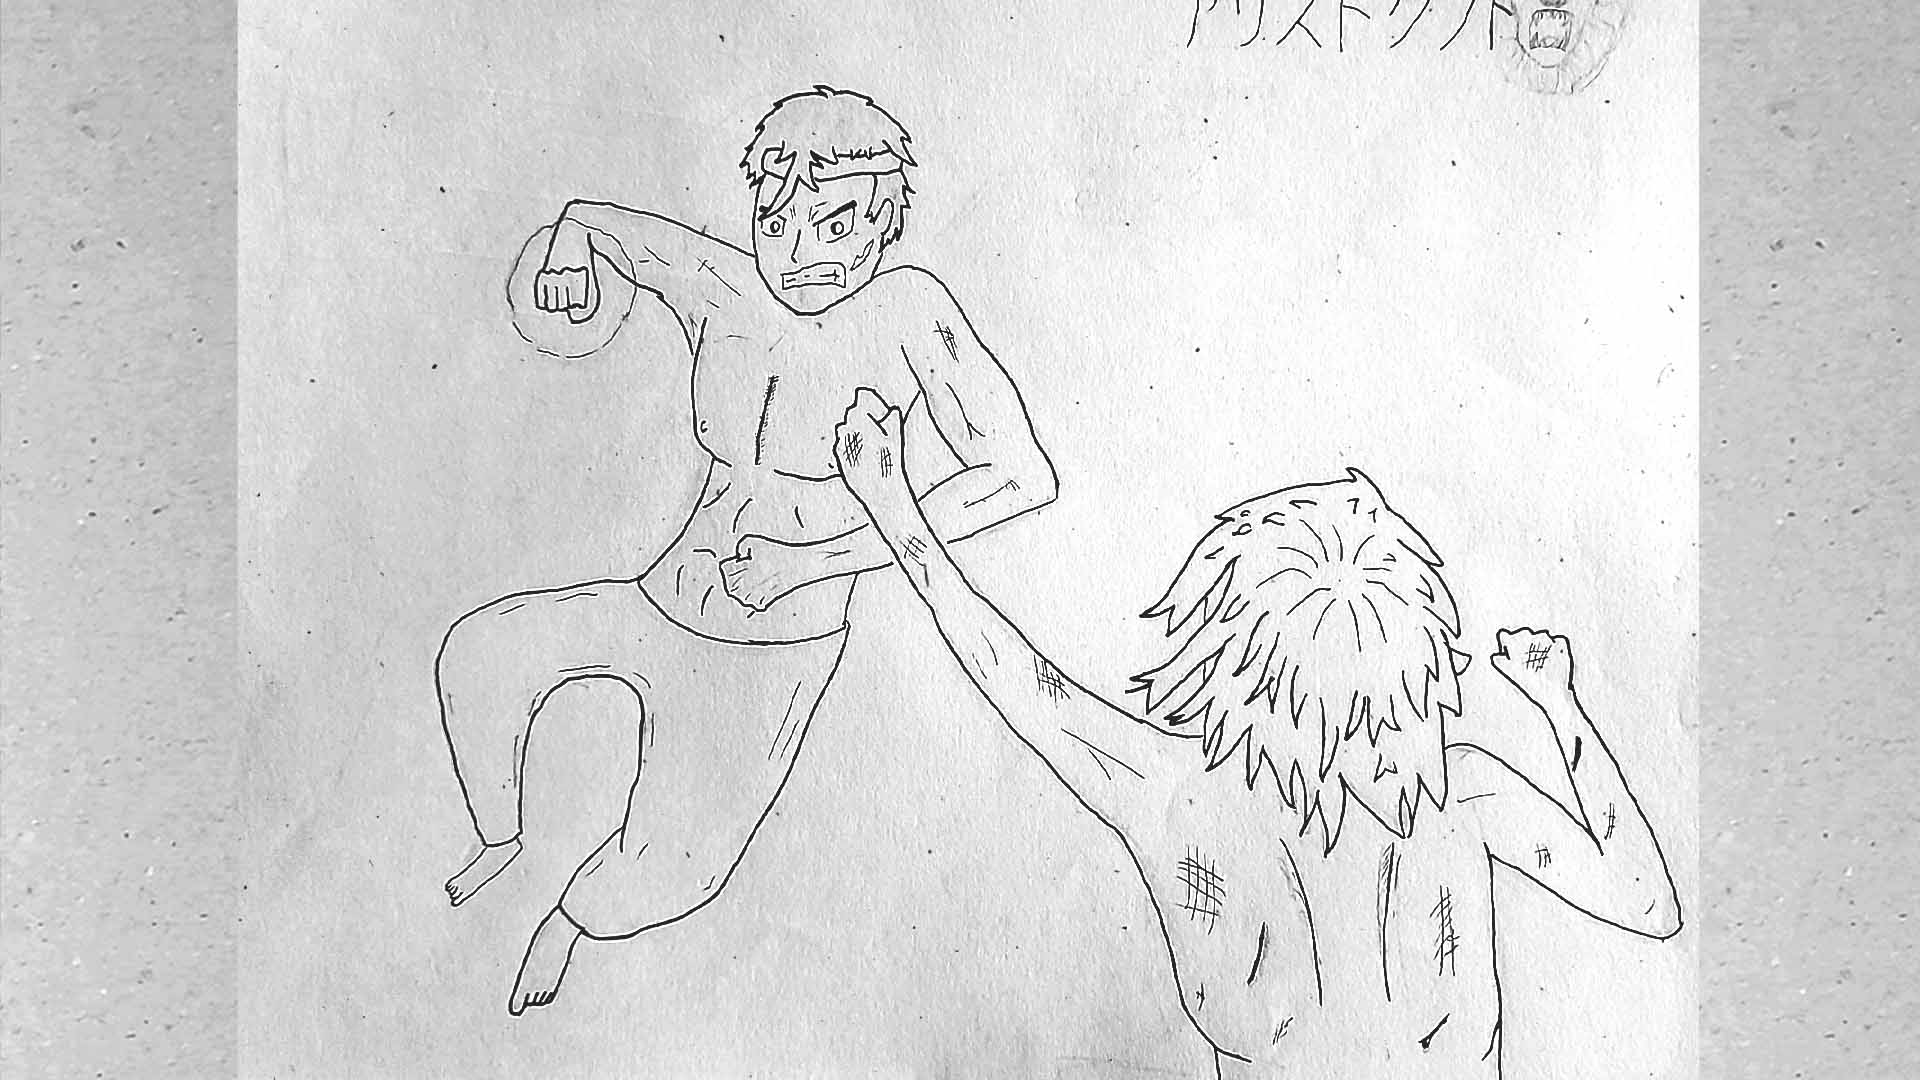 アリストクラト